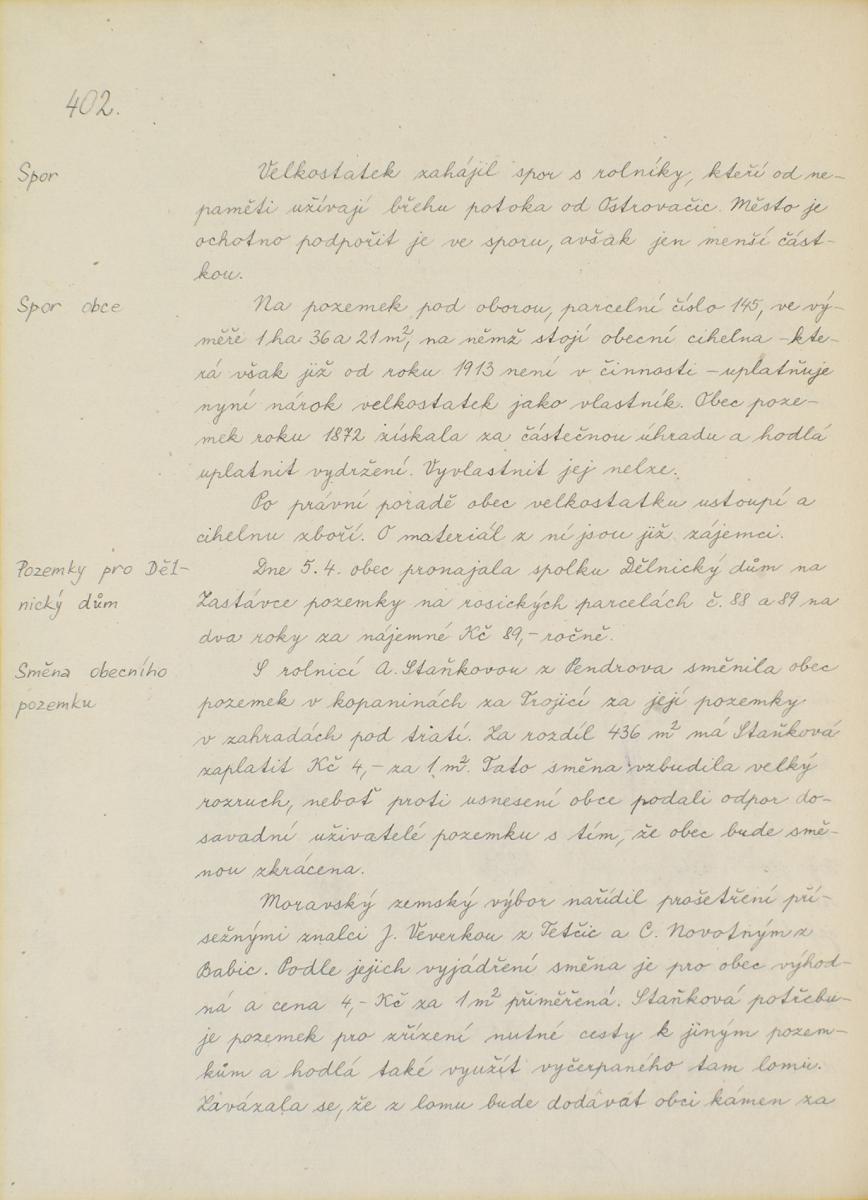 402.
Spor
Velkostatek zahájil spor s rolníky, kteří od ne-
paměti užívají břehu potoka od Ostrovačic. Město je
ochotno podpořit je ve sporu, avšak jen menší část-
kou.
Spor obce
Na pozemek pod oborou, parcelní číslo 145, ve vý-
měře 1 ha 36 a 21 m², na němž stojí obecní cihelna - kte-
rá však již od roku 1913 není v činnosti - uplatňuje
nyní nárok velkostatek jako vlastník. Obec poze-
mek roku 1872 získala za částečnou úhradu a hodlá
uplatnit vydržení. Vyvlastnit jej nelze.
Po právní poradě obec velkostatku ustoupí a
cihelnu zboří. O materiál z ní jsou již zájemci.
Pozemky pro Děl-
nický dům
Dne 5.4. obec pronajala spolku Dělnický dům na
Zastávce pozemky na rosických parcelách č. 88 a 89 na
dva roky za nájemné Kč 89,- ročně.
Směna obecního
pozemku
S rolnicí A. Staňkovou z Pendrova směnila obec
pozemek v kopaninách za Trojicí za její pozemky
v zahradách pod tratí. Za rozdíl 436 m² má Staňková
zaplatit Kč 4,- za 1 m². Tato směna vzbudila velký
rozruch, neboť proti usnesení obce podali odpor do-
savadní uživatelé pozemku s tím, že obec bude smě-
nou zkrácena.
Moravský zemský výbor nařídil prošetření pří-
sežnými znalci J. Veverkou z Tetčic a C. Novotným z
Babic. Podle jejich vyjádření směna je pro obec výhod-
ná a cena 4,- Kč za 1 m² přiměřená. Staňková potřebu-
je pozemek pro zřízení nutné cesty k jiným pozem-
kům a hodlá také využít vyčerpaného tam lomu.
Zavázala se, že z lomu bude dodávat obci kámen za